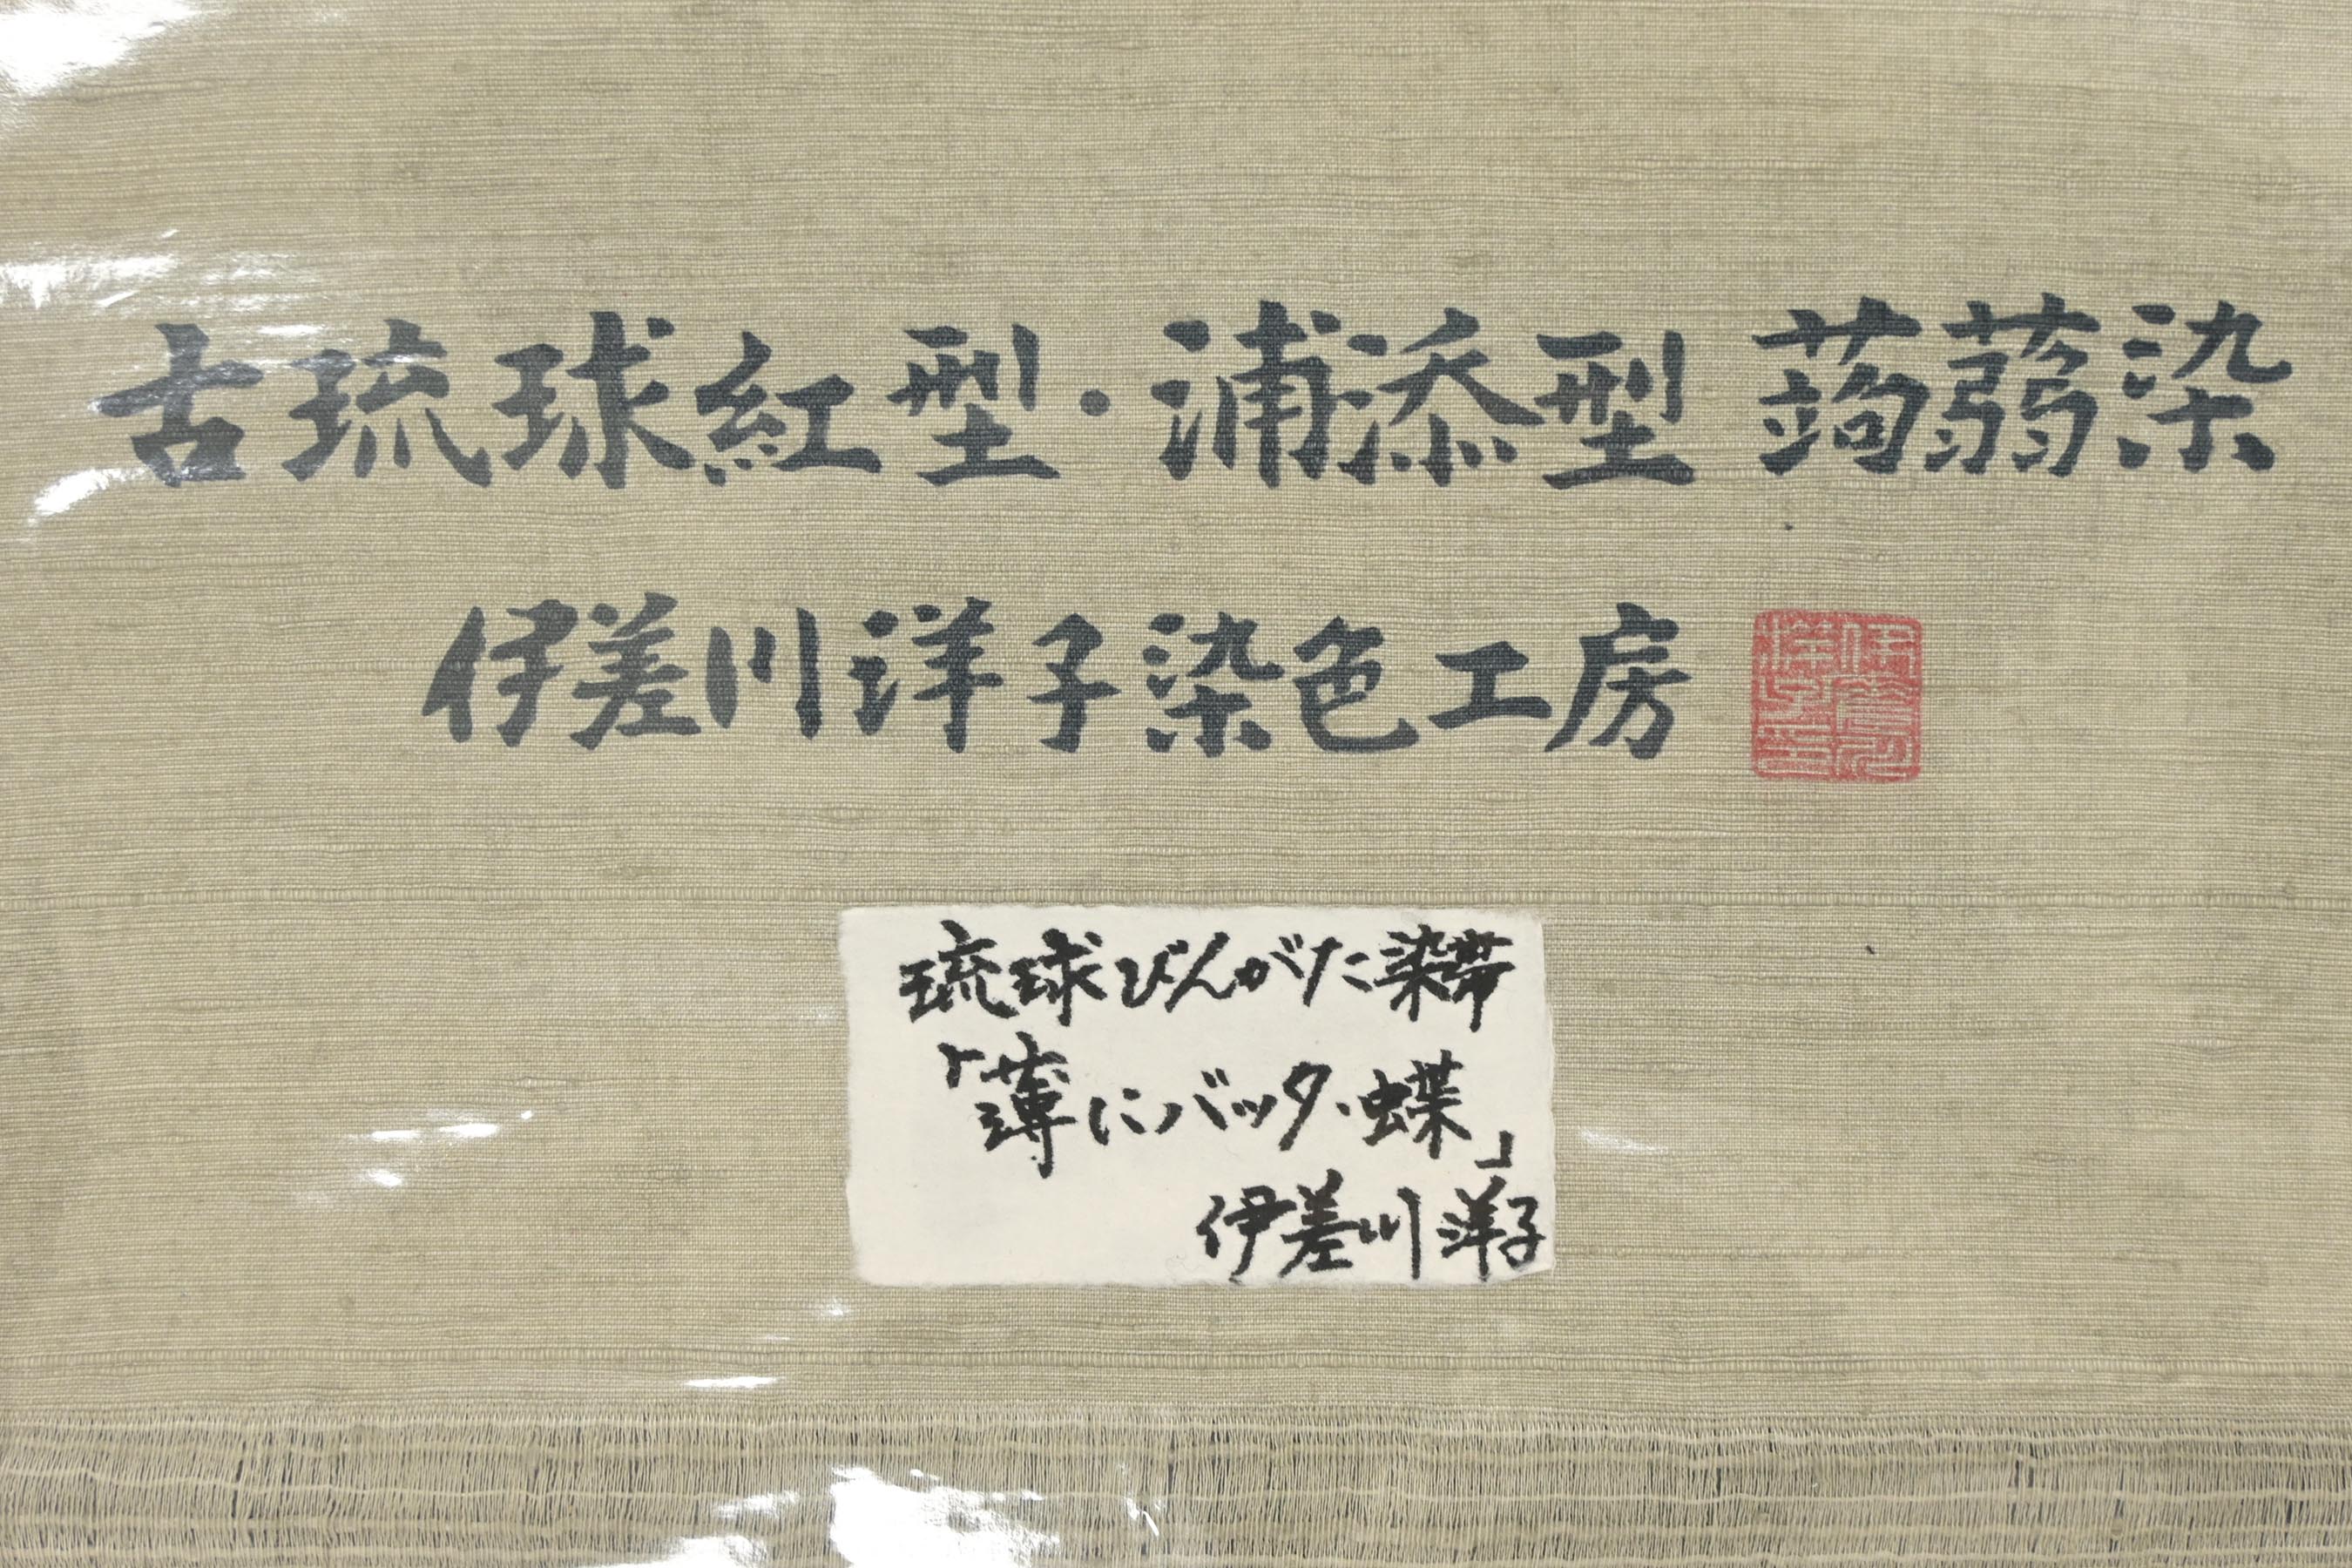 古琉球紅型・浦添型 蒟蒻染
伊差川洋子染色工房
琉球びんがた染帯
「薄にバッタ・蝶」
伊差川洋子